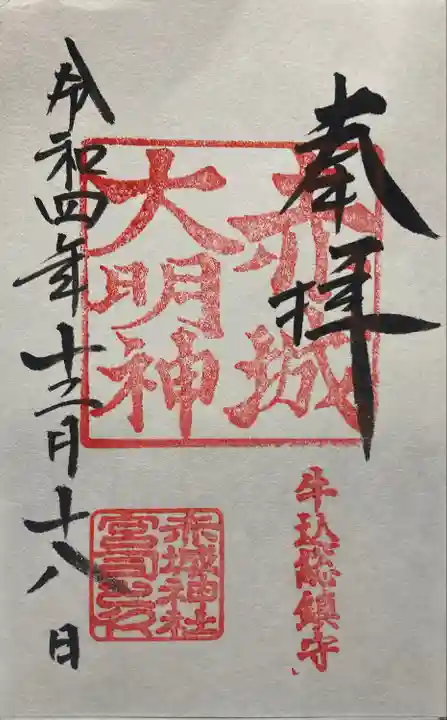 奉拝
赤城
大明神
牛込総鎮守
赤城神社
宮司之印
令和四年十二月十八日